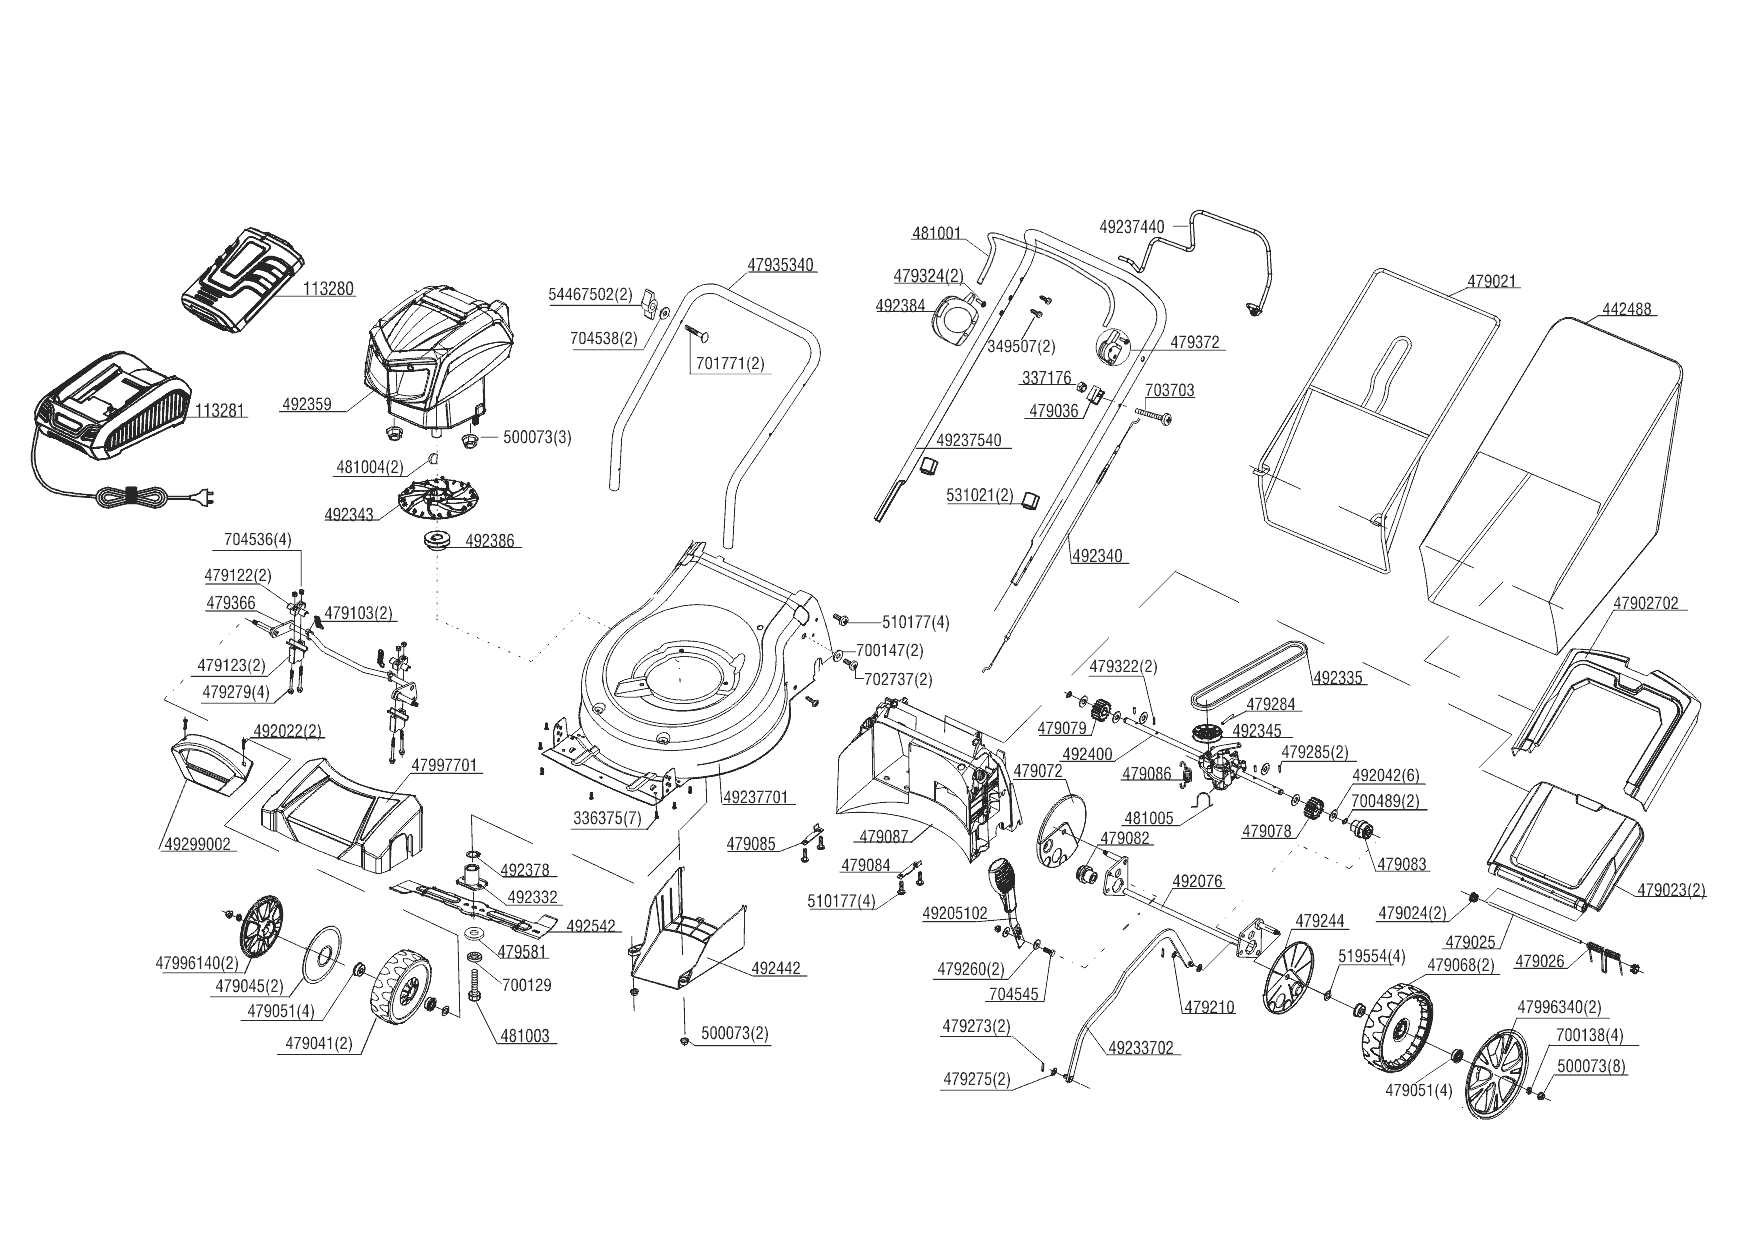 113280
113281
492359
500073(3)
481004(2)
492343
492386
47935340
54467502(2)
704538(2)
701771(2)
481001
479324(2)
492384
349507(2)
49237440
479372
337176
479036
703703
49237540
531021(2)
492340
479021
442488
47902702
704536(4)
479122(2)
479366
479103(2)
479123(2)
479279(4)
492022(2)
47997701
49299002
510177(4)
700147(2)
702737(2)
49237701
336375(7)
479322(2)
492335
479284
492345
479285(2)
479079
492400
479086
492042(6)
700489(2)
481005
479078
479083
479072
479082
479087
479085
479084
510177(4)
492378
492332
492542
479581
700129
481003
492442
500073(2)
47996140(2)
479045(2)
479051(4)
479041(2)
49205102
492076
479260(2)
704545
479210
479273(2)
49233702
479275(2)
479244
519554(4)
479068(2)
479024(2)
479025
479026
479023(2)
47996340(2)
700138(4)
500073(8)
479051(4)